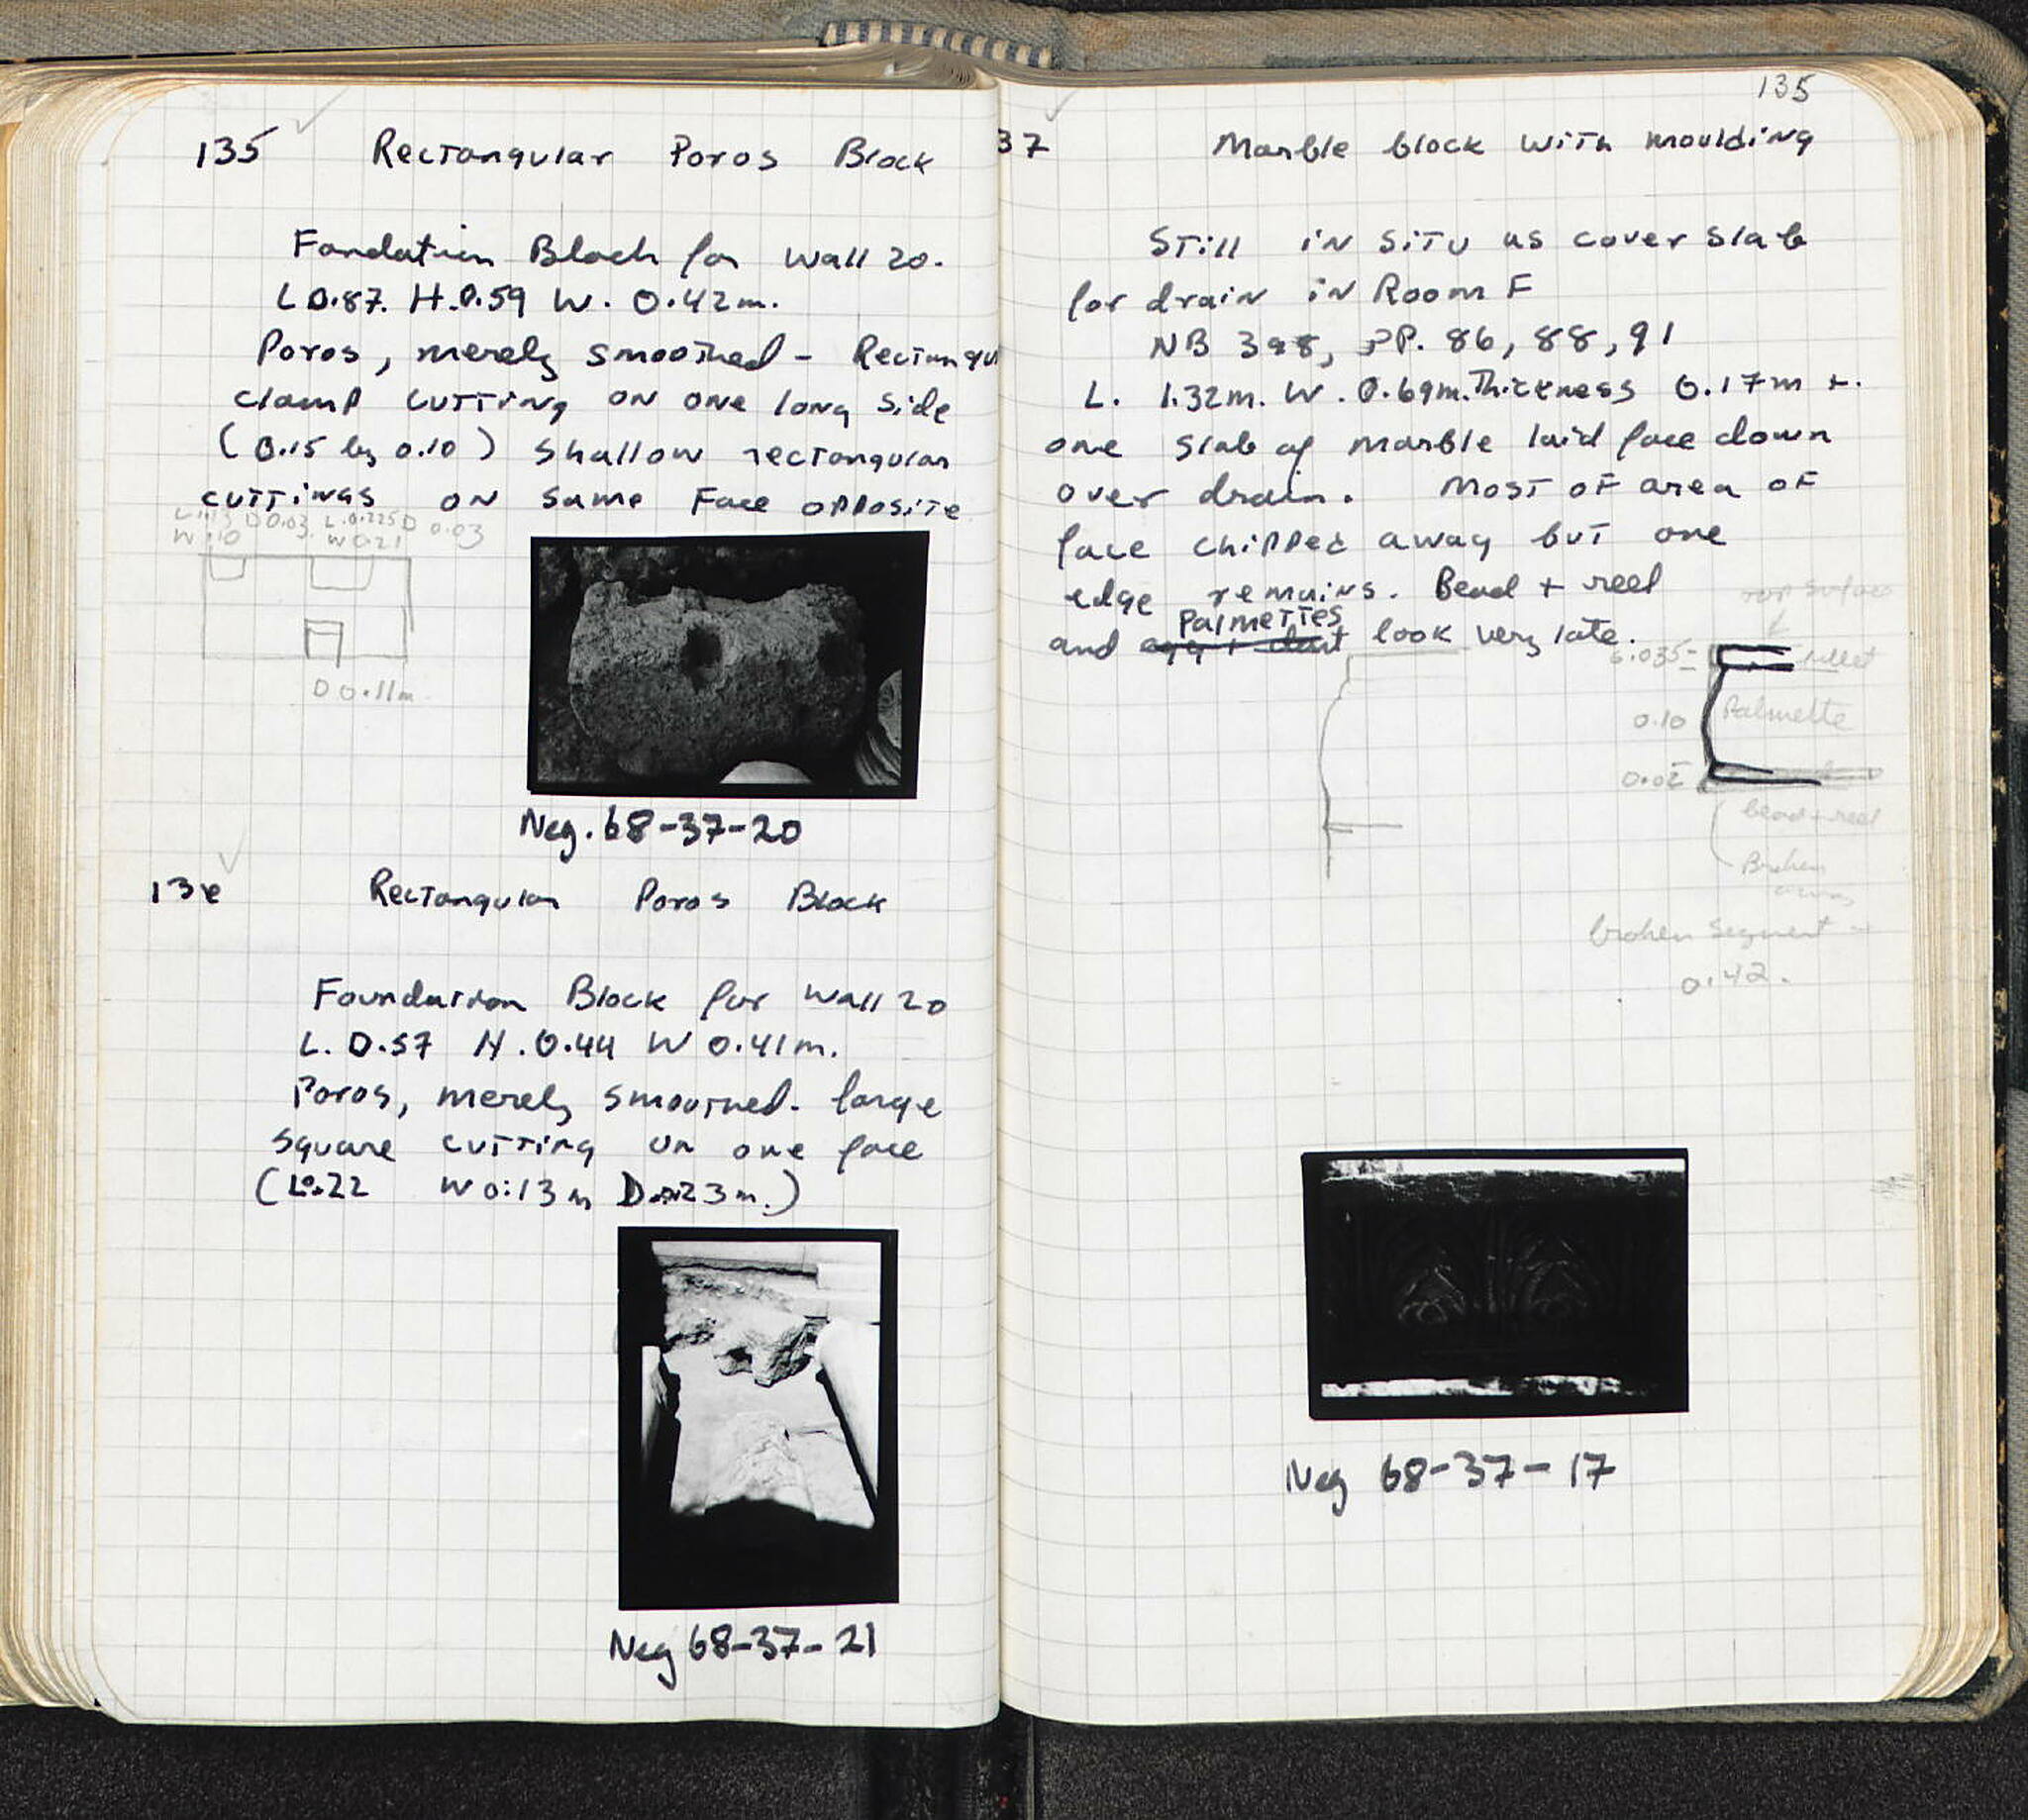 135 Rectangular Poros Block
Fondation Block for Wall 20.
L 0.87. H. 0.59 W. 0.42m.
Poros, merely smoothed - Rectangu
clamp cutting on one long side
(0.15 by 0.10) shallow rectangular
cuttings on same Face opposite
D 0.03. L. 0.225 D 0.03
W 0.21
D 0.11m
Neg. 68-37-20
136 Rectangular Poros Block
Foundation Block for Wall 20
L. 0.57 H. 0.44 W 0.41m.
Poros, merely smoothed. large
square cutting on one face
(L 0.22 W 0.13m D 0.23m.)
Neg 68-37-21
135
37 Marble block with moulding
Still in situ as cover slab
for drain in Room F
NB 398, PP. 86, 88, 91
L. 1.32m. W. 0.69m. Thickness 0.17m +.
one slab of marble laid face down
over drain. Most of area of
face chipped away but one
edge remains. Bead + reel
Palmettes
and egg + dart look very late.
top surface
0.035 fillet
0.10 Palmette
0.02
bead + reel
Broken
away
broken segment -
0.42.
Neg 68-37-17